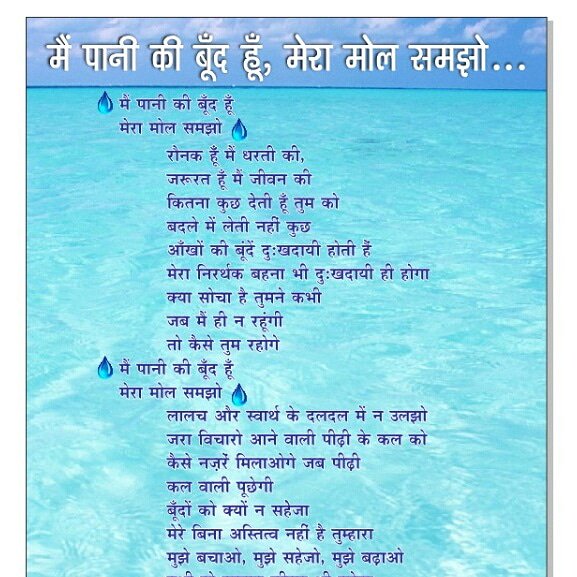 मैं पानी की बूँद हूँ, मेरा मोल समझो...
मैं पानी की बूँद हूँ
मेरा मोल समझो
रौनक हूँ मैं धरती की,
जरूरत हूँ मैं जीवन की
कितना कुछ देती हूँ तुम को
बदले में लेती नहीं कुछ
आँखों की बूंदें दुःखदायी होती हैं
मेरा निरर्थक बहना भी दुःखदायी ही होगा
क्या सोचा है तुमने कभी
जब मैं ही न रहूंगी
तो कैसे तुम रहोगे
मैं पानी की बूँद हूँ
मेरा मोल समझो
लालच और स्वार्थ के दलदल में न उलझो
जरा विचारो आने वाली पीढ़ी के कल को
कैसे नज़रें मिलाओगे जब पीढ़ी
कल वाली पूछेगी
बूँदों को क्यों न सहेजा
मेरे बिना अस्तित्व नहीं है तुम्हारा
मुझे बचाओ, मुझे सहेजो, मुझे बढ़ाओ